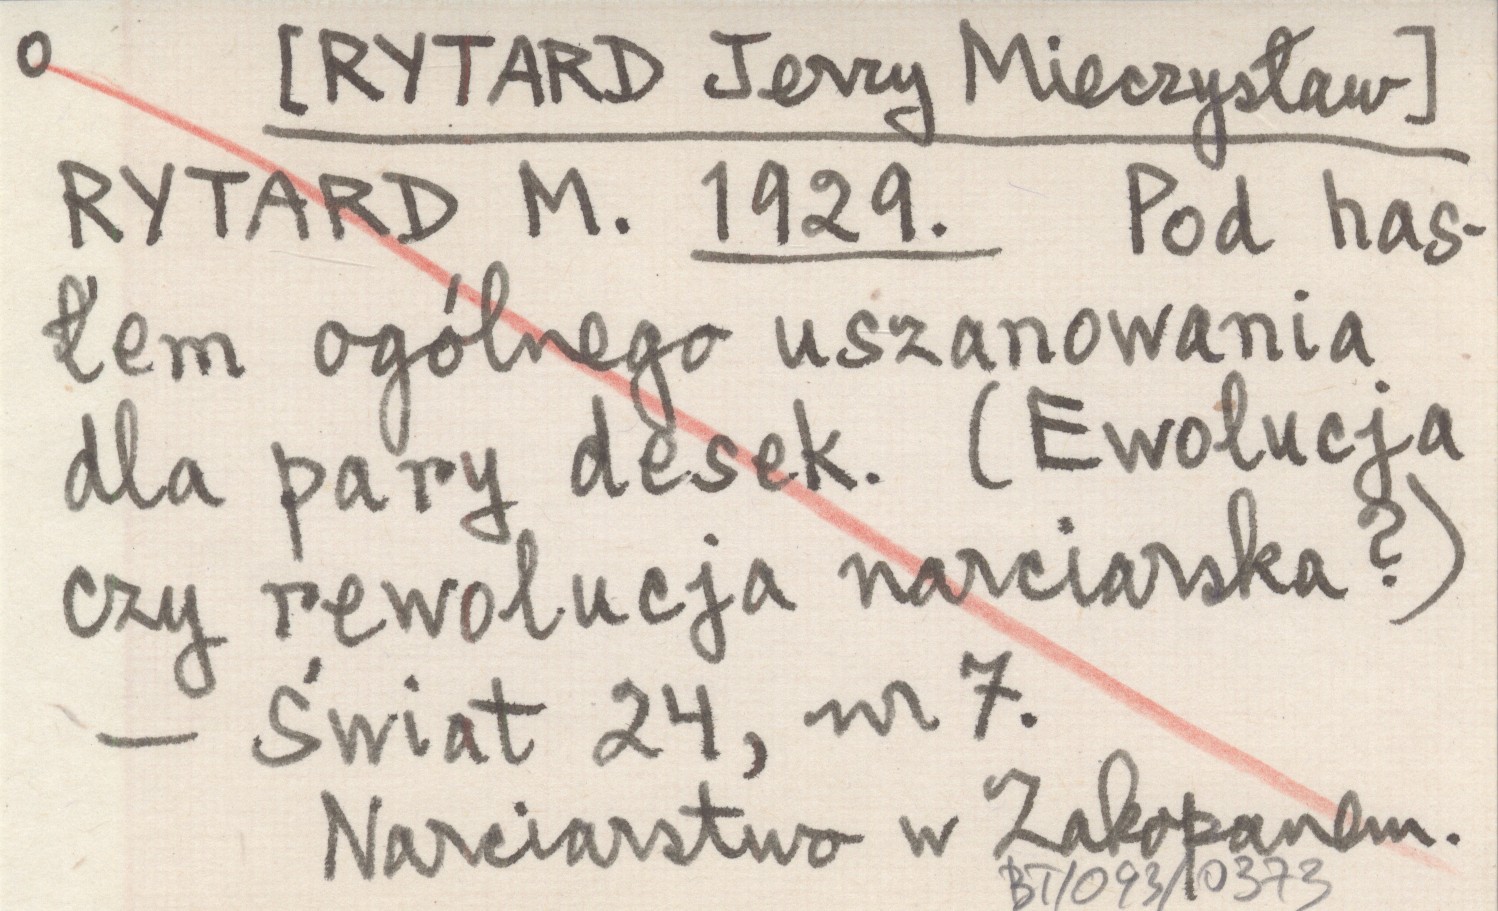 o [RYTARD Jerzy Mieczysław]
RYTARD M. 1929. Pod has-
łem ogólnego uszanowania
dla pary desek. (Ewolucja
czy rewolucja narciarska?)
— Świat 24, nr 7.
Narciarstwo w Zakopanem.
BT/093/10373